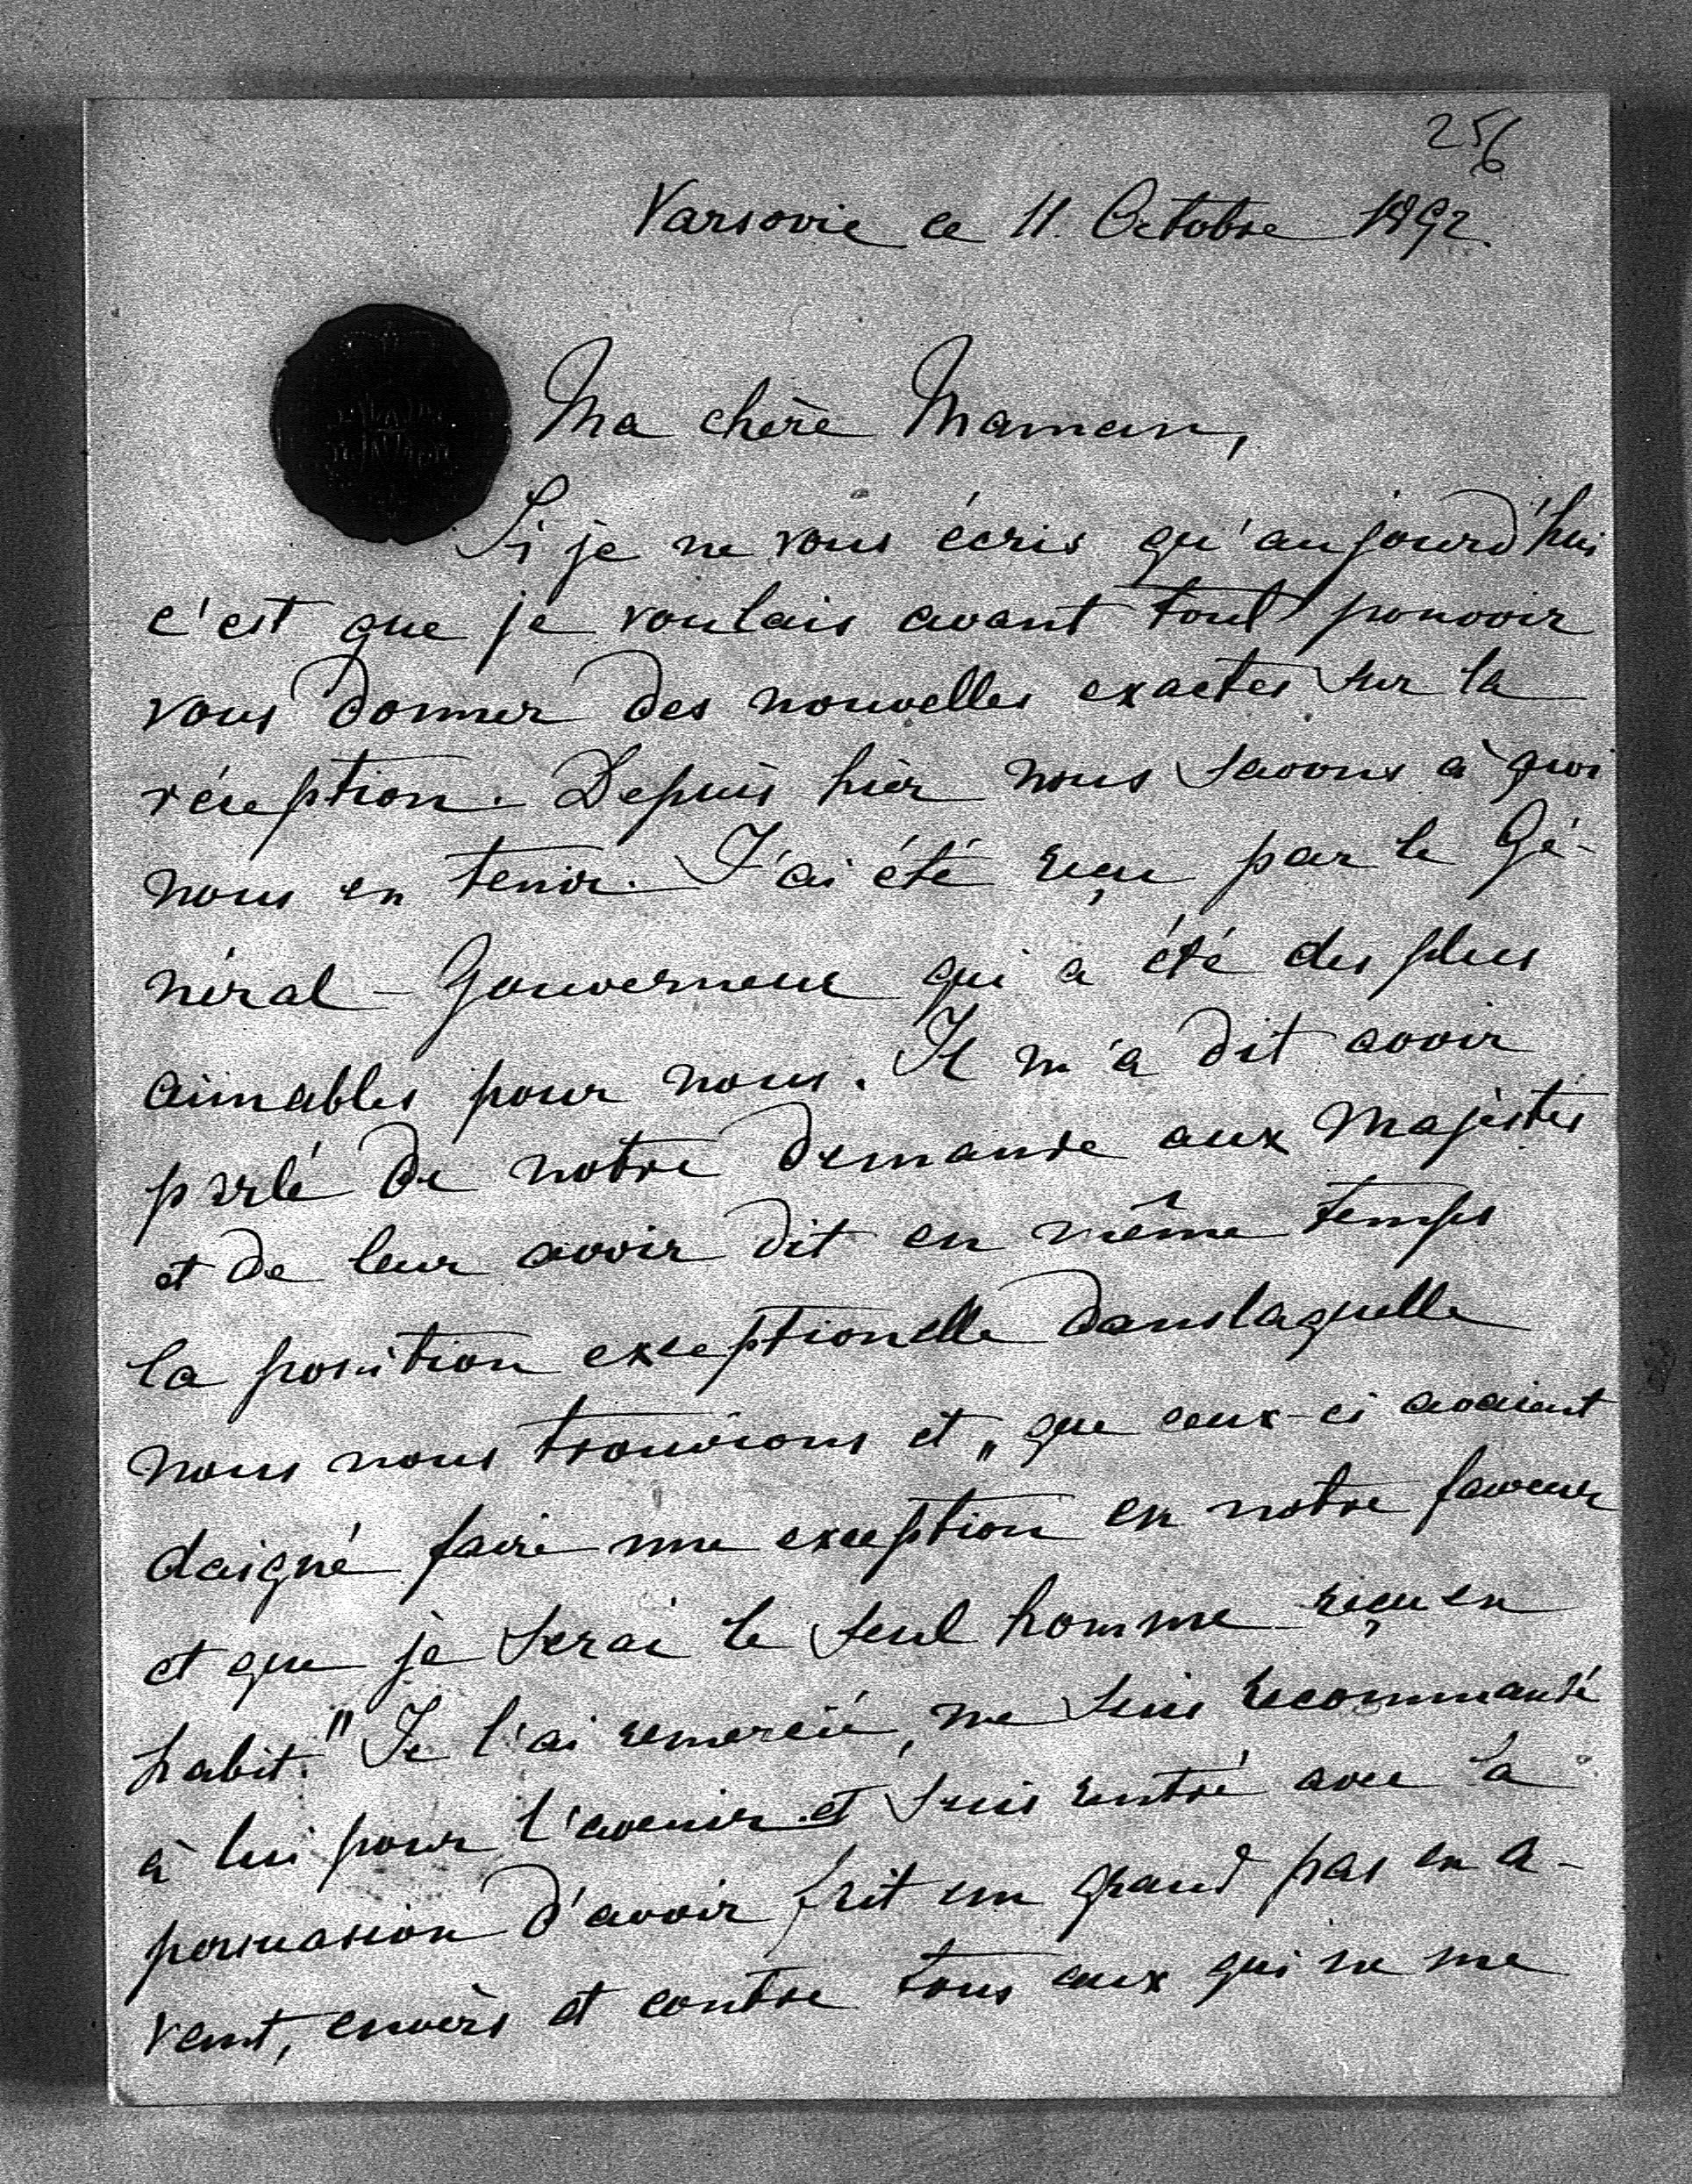 256
Varsovie ce 11. Octobre 1892.
Ma chère Maman,
Si je ne vous écris qu'aujourd'hui
c'est que je voulais avant tout pouvoir
vous donner des nouvelles exactes sur la
réception. Depuis hier nous savons à quoi
nous en tenir. J'ai été reçu par le Gé-
néral-Gouverneur qui a été des plus
aimables pour nous. Il m'a dit avoir
parlé de notre demande aux Majestés
et de leur avoir dit en même temps
la position exceptionelle dans laquelle
nous nous trouvions et „que ceux-ci avaient
daigné faire une exception en notre faveur
et que je serai le seul homme reçu en
habit." Je l'ai remercié, me suis recommandé
à lui pour l'avenir et suis rentré avec la
persuasion d'avoir fait un grand pas en a-
vant, envèrs et contre tous ceux qui ne me